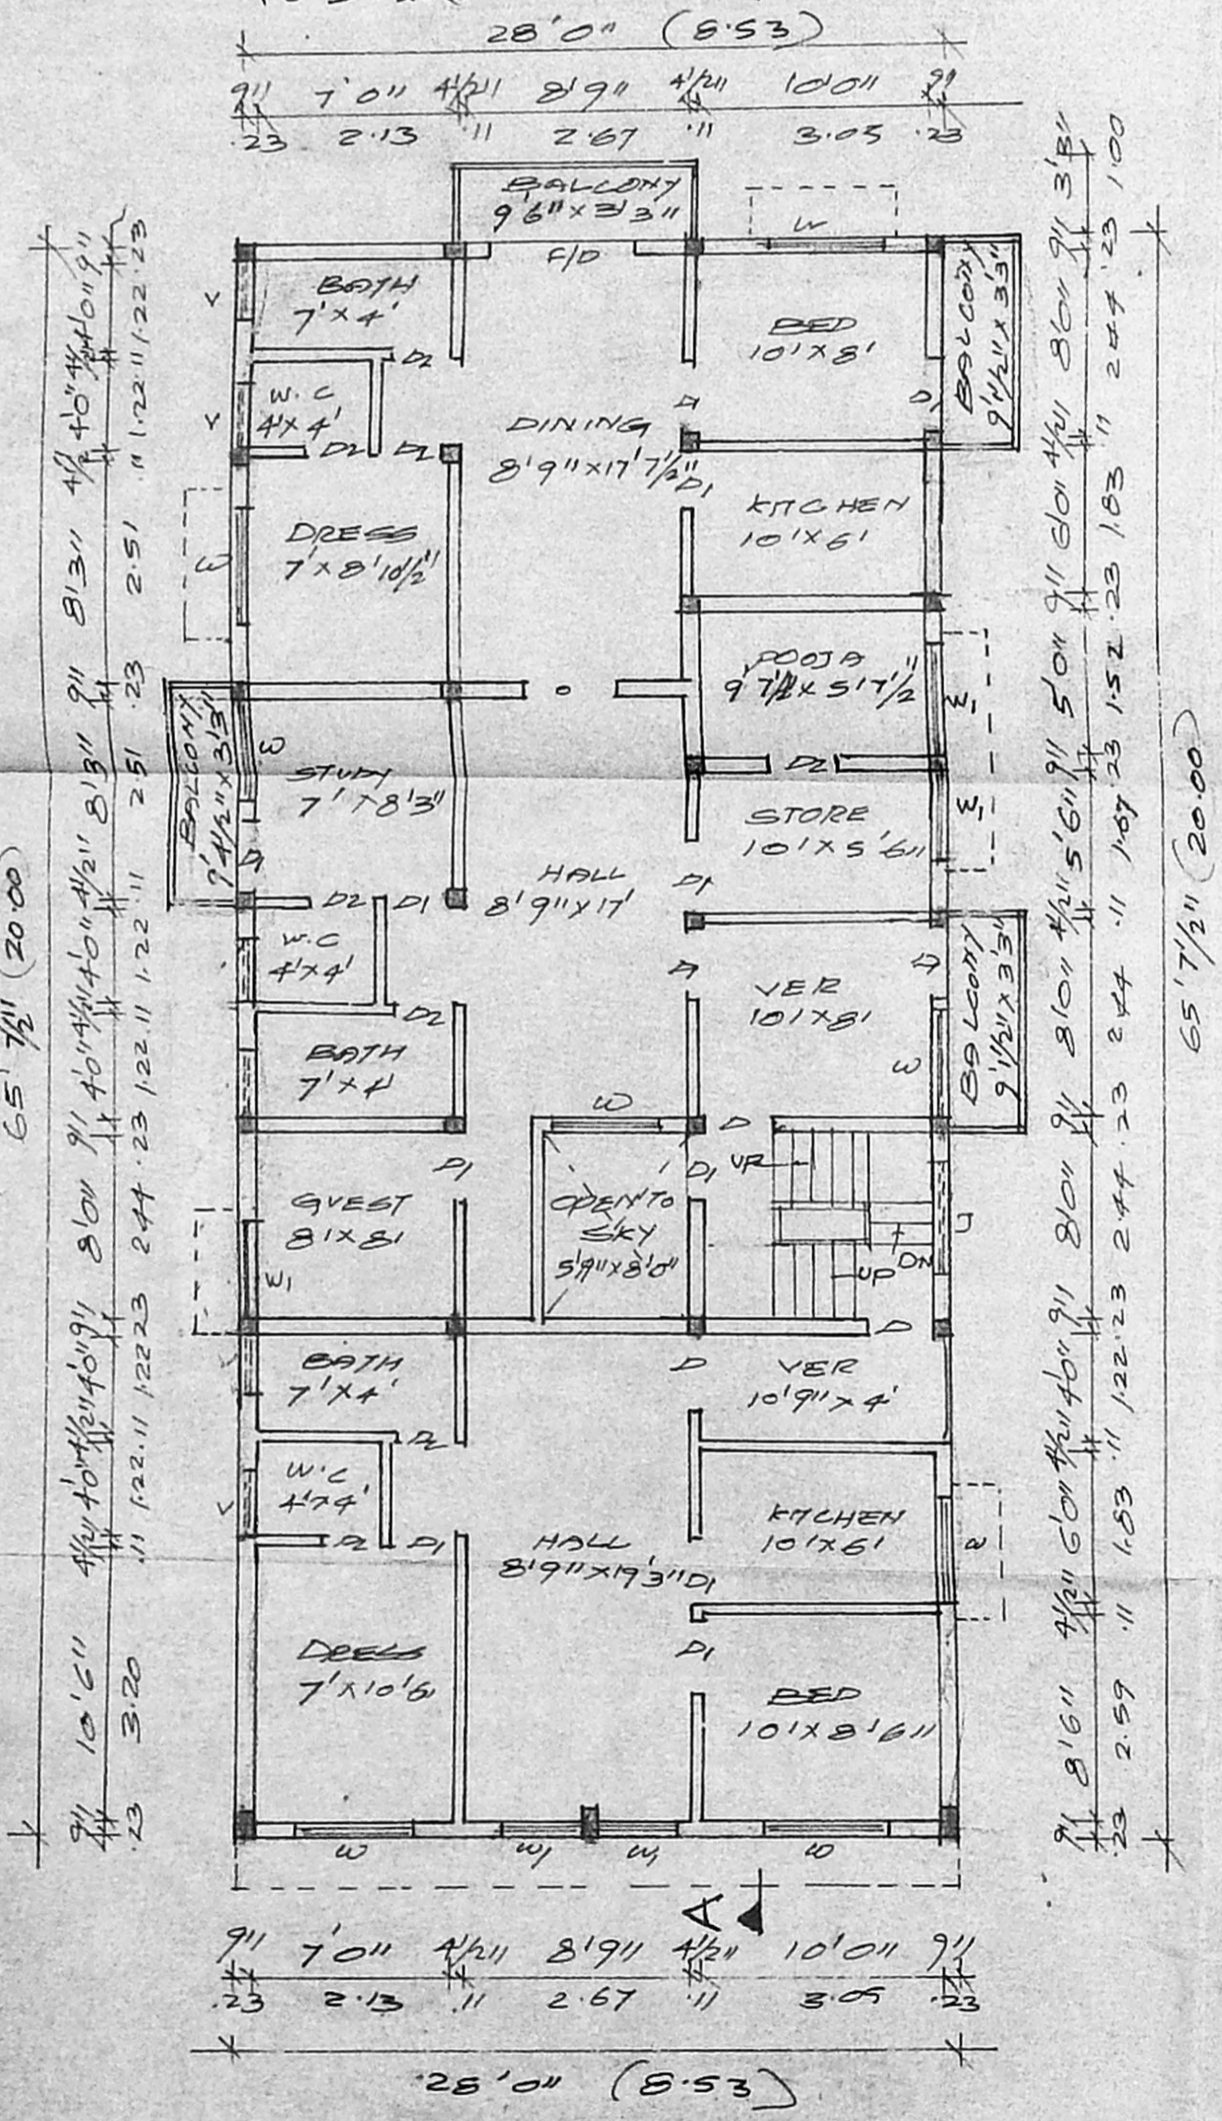 28'0" (8.53)
9" 7'0" 4½" 8'9" 4½" 10'0" 9"
.23 2.13 .11 2.67 .11 3.05 .23
BALCONY
9'6" x 3'3"
W
C/D
BATH
7'x4'
V
D2
BED
10'x8'
BALCONY
9'4½" x 3'3"
W.C
4'x4'
V
D2
D2
DINING
8'9" x 17'7½"
D1
D1
D1
KITCHEN
10'x6'
DRESS
7'x8'10½"
W
POOJA
9'7½ x 5'7½"
W1
O
D2
BALCONY
9'4½" x 3'3"
W
STUDY
7'x8'3"
D1
STORE
10'x5'6"
W1
HALL
8'9"x17'
D1
D2
D1
W.C
4'x4'
D2
D1
VER
10'x8'
D1
W
BALCONY
9'1½" x 3'3"
BATH
7'x4'
W
D
D1
D1
UP
GUEST
8'x8'
W1
OPEN TO
SKY
5'9"x8'0"
J
DN
UP
D
BATH
7'x4'
D
VER
10'9"x4'
D2
W.C
4'x4'
V
D2
D1
HALL
8'9"x19'3"
D1
KITCHEN
10'x6'
D1
DRESS
7'x10'6
BED
10'x8'6"
W
W1
W1
W
A
9" 7'0" 4½" 8'9" 4½" 10'0" 9"
.23 2.13 .11 2.67 .11 3.05 .23
28'0" (8.53)
65'7½" (20.00)
9" 10'6" 4½" 4'0" 4½" 4'0" 9" 8'0" 9" 4'0" 4½" 4'0" 4½" 8'3" 9" 8'3" 4½ 4'0" 4½ 4'0" 9"
.23 3.20 .11 1.22 .11 1.22 .23 2.44 .23 1.22 .11 1.22 .11 2.51 .23 2.51 .11 1.22 .11 1.22 .23
9" 8'6" 4½" 6'0" 4½" 4'0" 9" 8'0" 9" 8'0" 4½" 5'6" 9" 5'0" 9" 6'0" 4½" 8'0" 9" 3'3"
.23 2.59 .11 1.83 .11 1.22 .23 2.44 .23 2.44 .11 1.67 .23 1.52 .23 1.83 .11 2.44 .23 1.00
65'7½" (20.00)